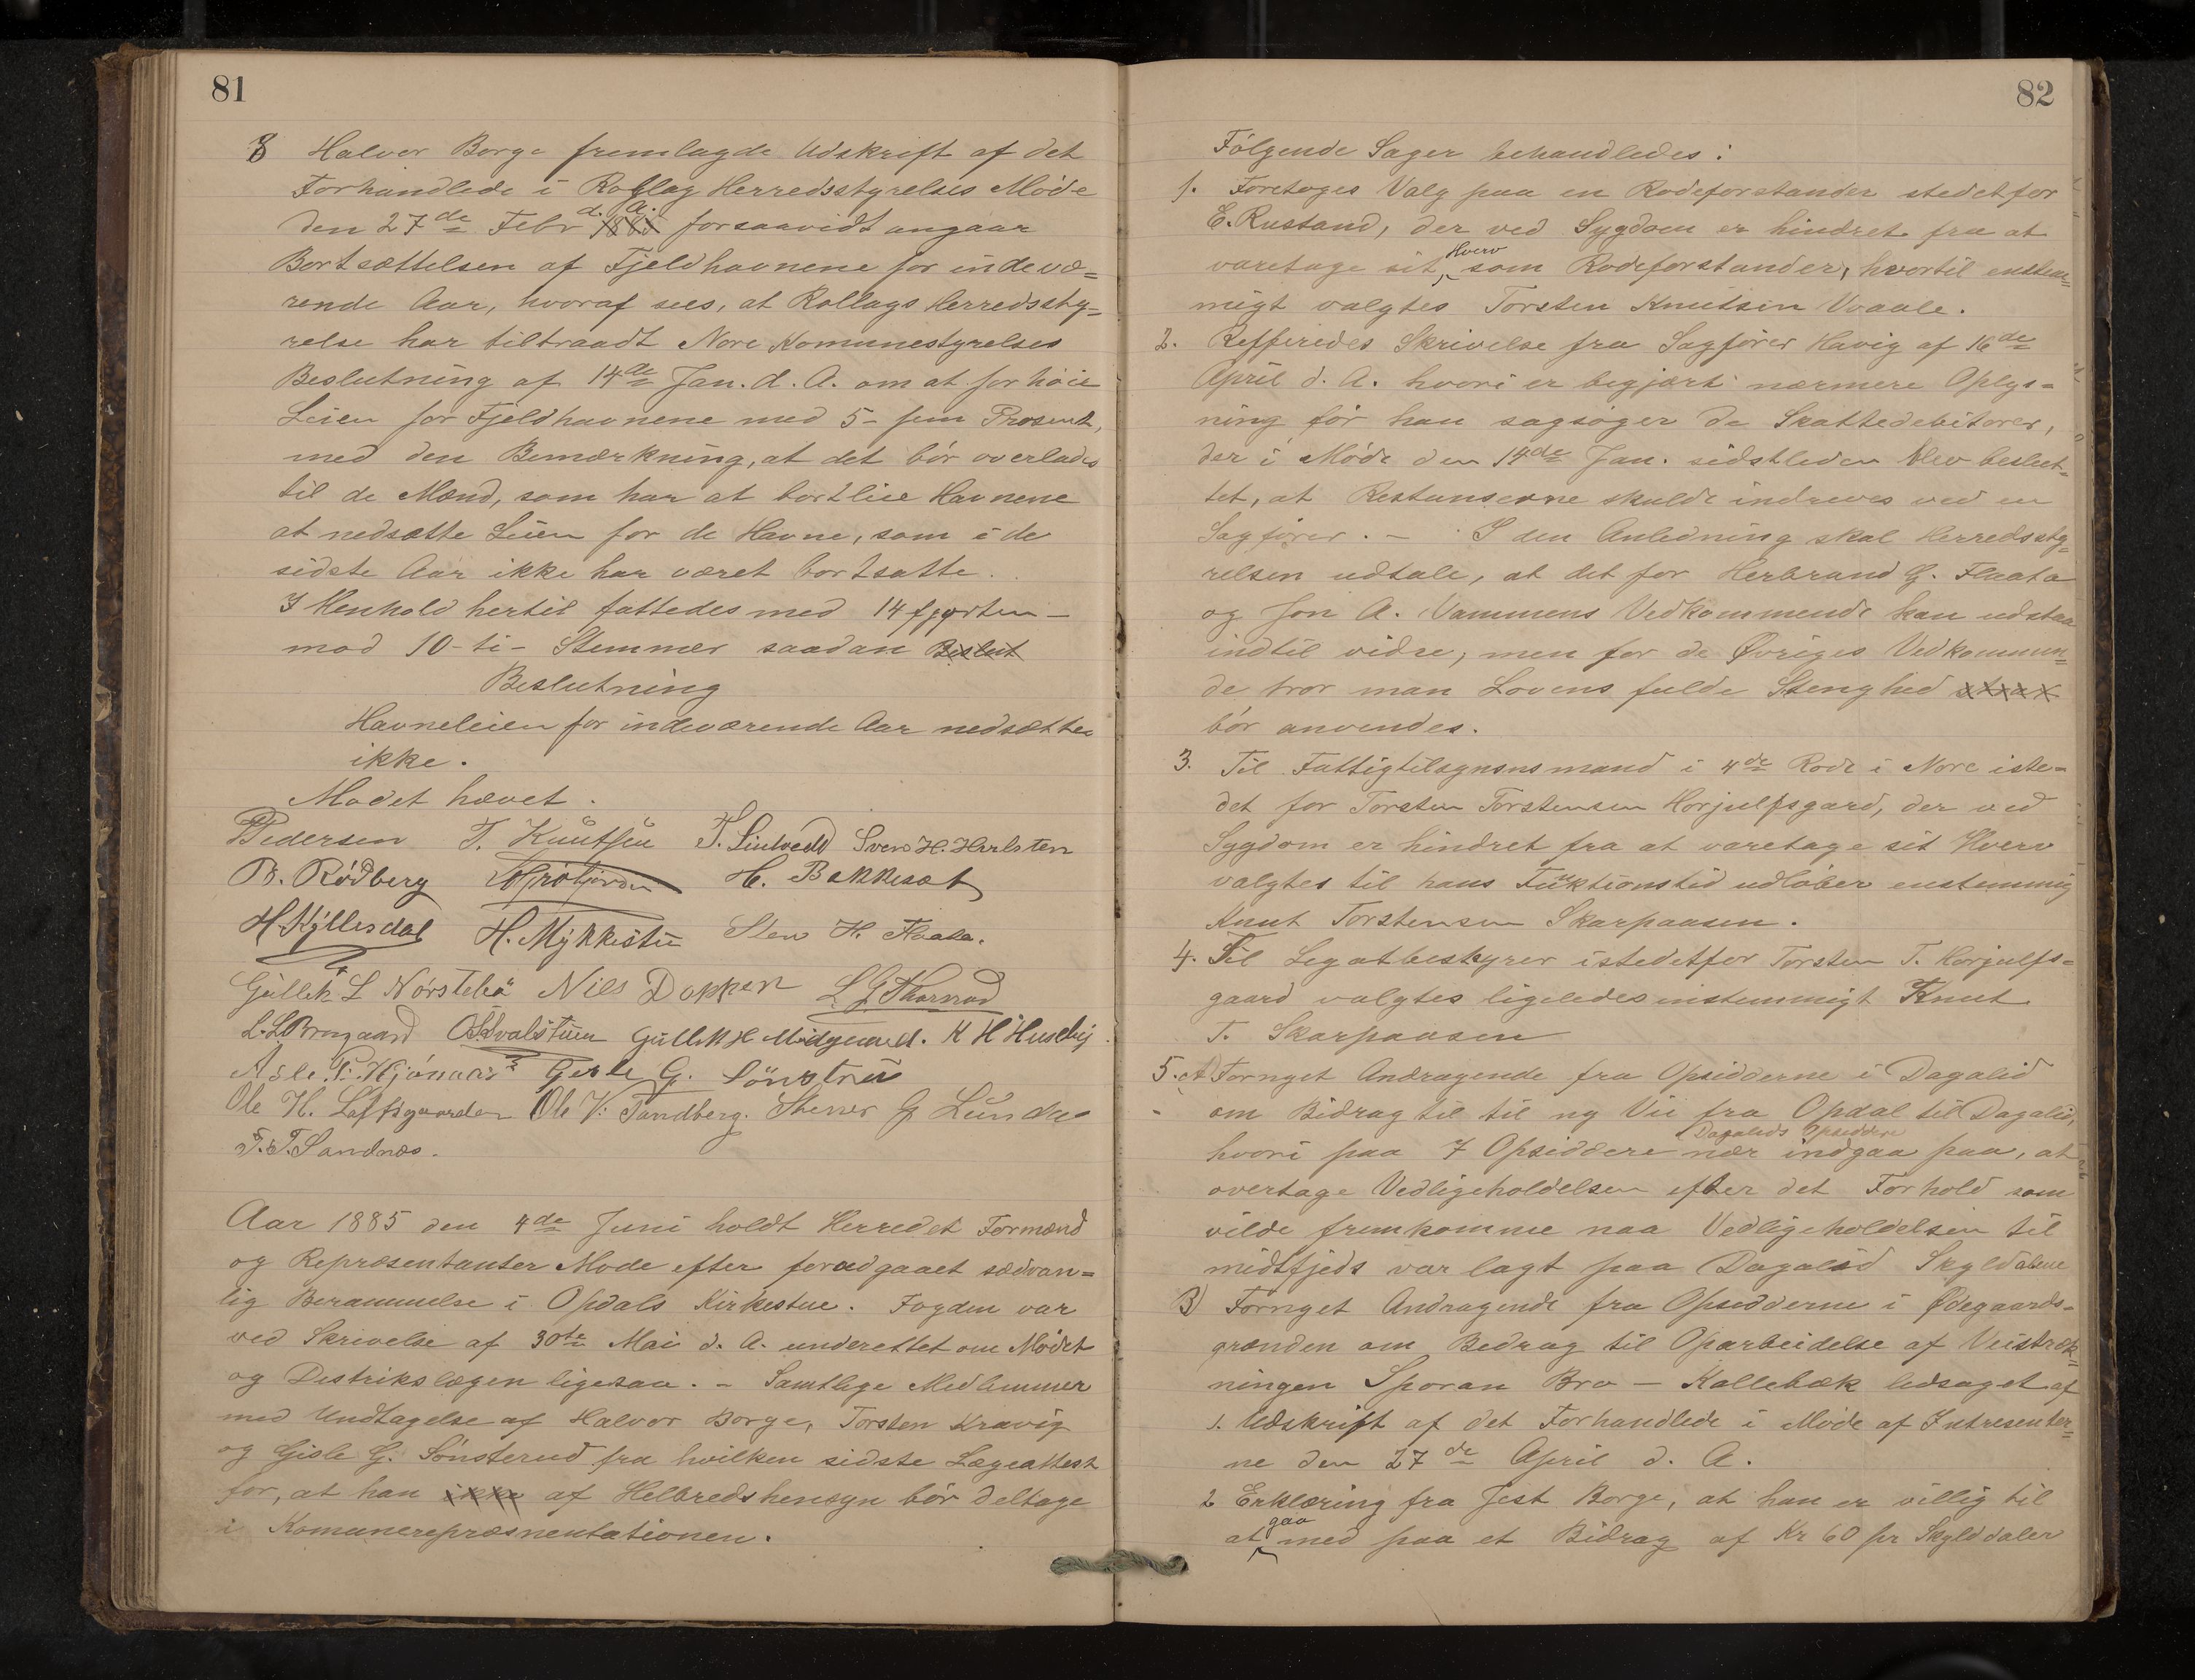 81
8 Halvor Borge fremlagde Udskrift af det
Forhandlede i Rollag Herredsstyrelses Møde
den 27de Febr d. A. forsaavidt angaar
Bortsættelsen af Fjeldhavnene for indevæ=
rende Aar, hvoraf sees, at Rollags Herredssty=
relse har tiltraadt Nore Komunestyrelses
Beslutning af 14de Jan. d. A. om at forhøie
Leien for Fjeldhavnene med 5- fem Prosent,
med den Bemærkning, at det bør overlades
til de Mænd, som har at bortleie Havnene
at nedsætte Leien for de Havne, som i de
sidste Aar ikke har været bortsatte.
I Henhold hertil fattedes med 14 fjorten -
mod 10 - ti - Stemmer saadan Beslut
Beslutning
Havneleien for indeværende Aar nedsættes
ikke.
Mødet hævet.
Pedersen T. Knutsen T. Sintveds Sven H. Harlsten
B. Rødberg H. Bakkesat
H. Kyllesdal H. Mykkestu Sten H. Flaata.
Gullek L Nørstebø Niels Dokken L G Thormod
L. L. Brogaard O. S. Svalstuen Gullek H Midgaard. K H Huseby
Asle Gisle G. Sønstrud
Ole H. Loftsgaarden Ole V. Tandberg. Stener G Lunde
T. T. Sandnæs.
Aar 1885 den 4de Juni holdt Herredet Formænd
og Repræsentanter Møde efter forudgaaet sædvan=
lig Berammelse i Opdals Kirkestue. Fogden var
ved Skrivelse af 30te Mai d. A. underettet om Mødet
og Destrikslægen ligesaa. - Samtlige Medlemmer
med Undtagelse af Halvor Borge, Torsten Kravig
og Gisle G. Sønsterud fra hvilken sidste Lægeattest
for, at han ikke af Helbredshensyn bør deltage
i Komunerepræsnentationen.
82
Følgende Sager behandledes:
1. Foretoges Valg paa en Rodeforstander stedetfor
E. Rustand, der ved Sygdom er hindret fra at
varetage sit Hverv som Rodeforstander, hvortil enstem=
migt valgtes Torsten Knutsen Vraale.
2. Refferedes Skrivelse fra Sagfører Havig af 16de
April d. A. hvori er begjært nærmere Oplys=
ning før han sagsøger de Skattedebitorer,
der i Møde den 14de Jan. sidstleden blev beslut=
tet, at Restanserne skulde indreves ved en
Sagfører. - I den Anledning skal Herredssty=
relsen udtale, at det for Herbrand G. Flaata
og Jon A. Vammens Vedkommende kan udstaa
indtil vidre, men for de Øvriges Vedkommen=
de tror man Lovens fulde Stenghed strax
bør anvendes.
3. Til Fattigtilsynsmand i 4de Rode i Nore iste=
det for Torsten Torstensen Horjulfsgard, der ved
Sygdom er hindret fra at varetage sit Hverv
valgtes til hans Funktionstid udløber enstemmig
Knut Torstensen Skarpaasen.
4. Til Legatbestyrer istedetfor Torsten T. Horjulfs=
gaard valgtes ligeledes enstemmigt Knut
T. Skarpaasen
5. A Fornyet Andragende fra Opsidderne i Dagalid
om Bidrag til til ny Vei fra Opdal til Dagalid,
Dagalids Opsiddere
hvori paa 7 Opsiddere nær indgaa paa, at
overtage Vedligeholdelsen efter det Forhold som
vilde fremkomme naa Vedligeholdelsen til
midtfjeds var lagt paa Dagalid Skyld alene
B) Fornyet Andragende fra Opsidderne i Ødegaards=
grænden om Bedrag til Oparbeidelse af Veistræk=
ningen Sporan Bro - Kallebæk ledsaget af
1. Udskrift af det Forhandlede i Møde af Intresenter=
ne den 27de April d. A.
2 Erklæring fra Jest Borge, at han er villig til
at gaa med paa et Bidrag af Kr 60 pr Skylddaler